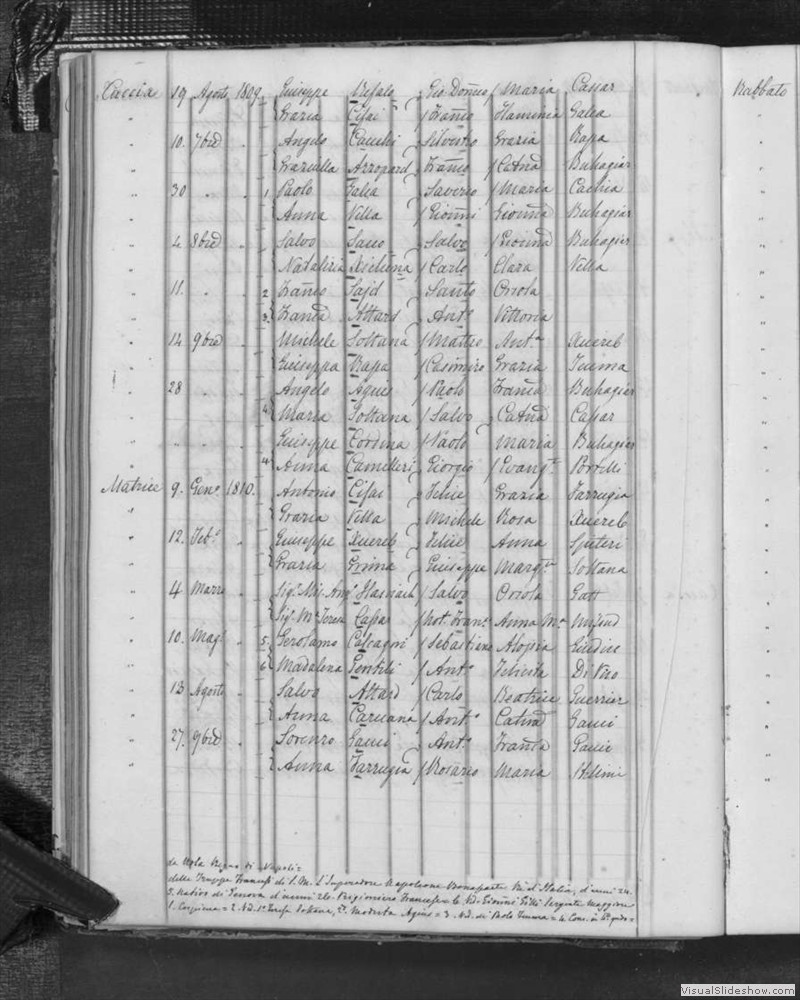 Caccia 19 Agosto 1809 Giuseppe Refalo Gio Domco Maria Cassar Rabbato
" Grazia Cifai Franco Flaminia Galea
" 10. 7bre " Angelo Cauchi Silvestro Grazia Rapa
" Graziulla Arropard Franco Catna Buhagiar
" 30 " " 1. Paolo Galea Saverio Maria Cachia
" Anna Vella Gionni Gionna Buhagiar
" 4 8bre " Salvo Salvo Gionna Buhagiar
" Natalizia Xichena Carlo Clara Vella
" 11. " " 2 Franco Sajd Santo Orsola
" 3. Franca Attard Anto Vittoria
" 14 9bre " Michele Soltana Matteo Anta Xuereb
" Giuseppa Rapa Casimiro Grazia
" 28 " " Angelo Agius Paolo Franca Buhagiar
" 4 Maria Soltana Salvo Catna Cassar
" " " " Giuseppe Cordina Paolo Maria Buhagiar
" 4 Anna Camilleri Giorgio Evangta Portelli
Matrice 9. Geno 1810. Antonio Cifai Felice Grazia Farrugia
" Grazia Vella Michele Rosa Xuereb
" 12. Febo " Giuseppe Xuereb Felice Anna Spiteri
" Grazia Grima Giuseppe Margta Soltana
" 4 Marzo " Sigr Salvo Orsola Gatt
" Siga Ma Teresa Cassar Not. Franc Anna Ma Mifsud
" 10. Mago " 5. Gerolamo Calcagni Sebastiano Aloisia Giudice
" 6 Madalena Gentili Anto Felicita Di Vivo
" 13 Agosto " Salvo Attard Carlo Beatrice Guerrier
" Anna Caruana Anto Catna Gauci
" 27. 9bre " Lorenzo Gauci Anto Franca Gauci
" Anna Farrugia Rosario Maria
de Nola Regno di Napoli =
delle Truppe Francesi di S. M. L'Imperadore Napoleone Bonaparte Re d'Italia, d'anni 24.
5. Nativo di Genova d'anni 26. Prigioniero Francese = 6. Nd. Gionni Sergente Maggiore
1. = 2. Nd. Soltana, Modesta Agius = 3. Nd. di Paolo = 4 Cons. in 4o grado =
VisualSlideshow.com